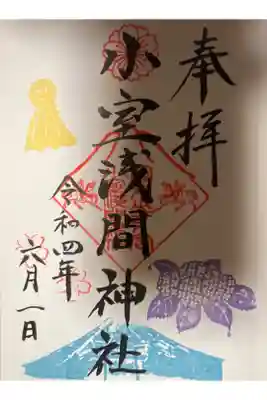 奉拝
小室浅間神社
令和四年
六月一日